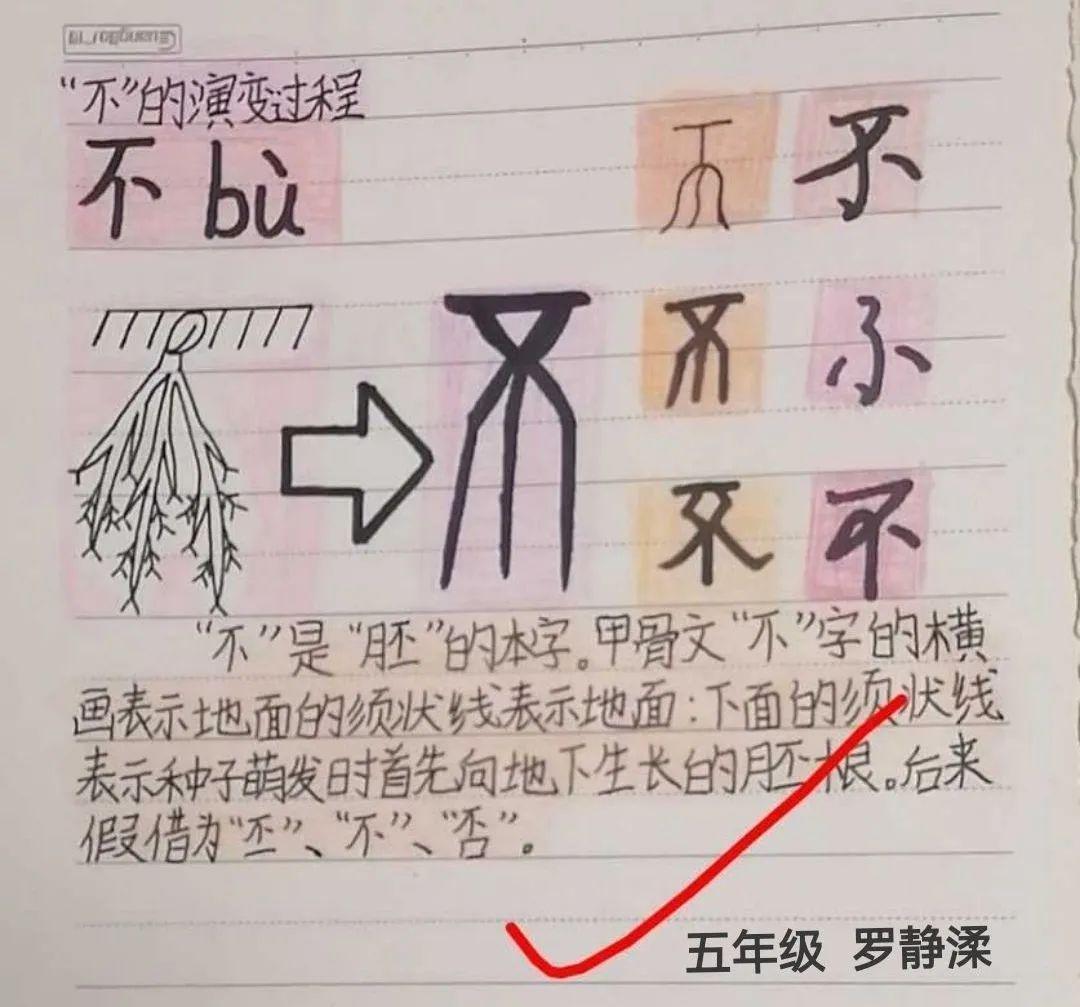 “不”的演变过程
不 bù
“不”是“胚”的本字。甲骨文“不”字的横
画表示地面的须状线表示地面：下面的须状线
表示种子萌发时首先向地下生长的胚根。后来
假借为“丕”、“不”、“否”。
五年级 罗静渘